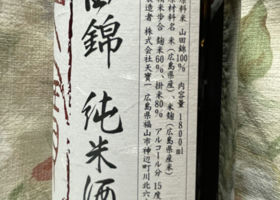 原料米 山田錦100% 内容量 1800ml
原材料名 米(広島県産)、米麹(広島県産米)
精米歩合 麹米60%、掛米80% アルコール分 15度
製造者 株式会社天寶一 広島県福山市神辺町川北六
田錦 純米酒